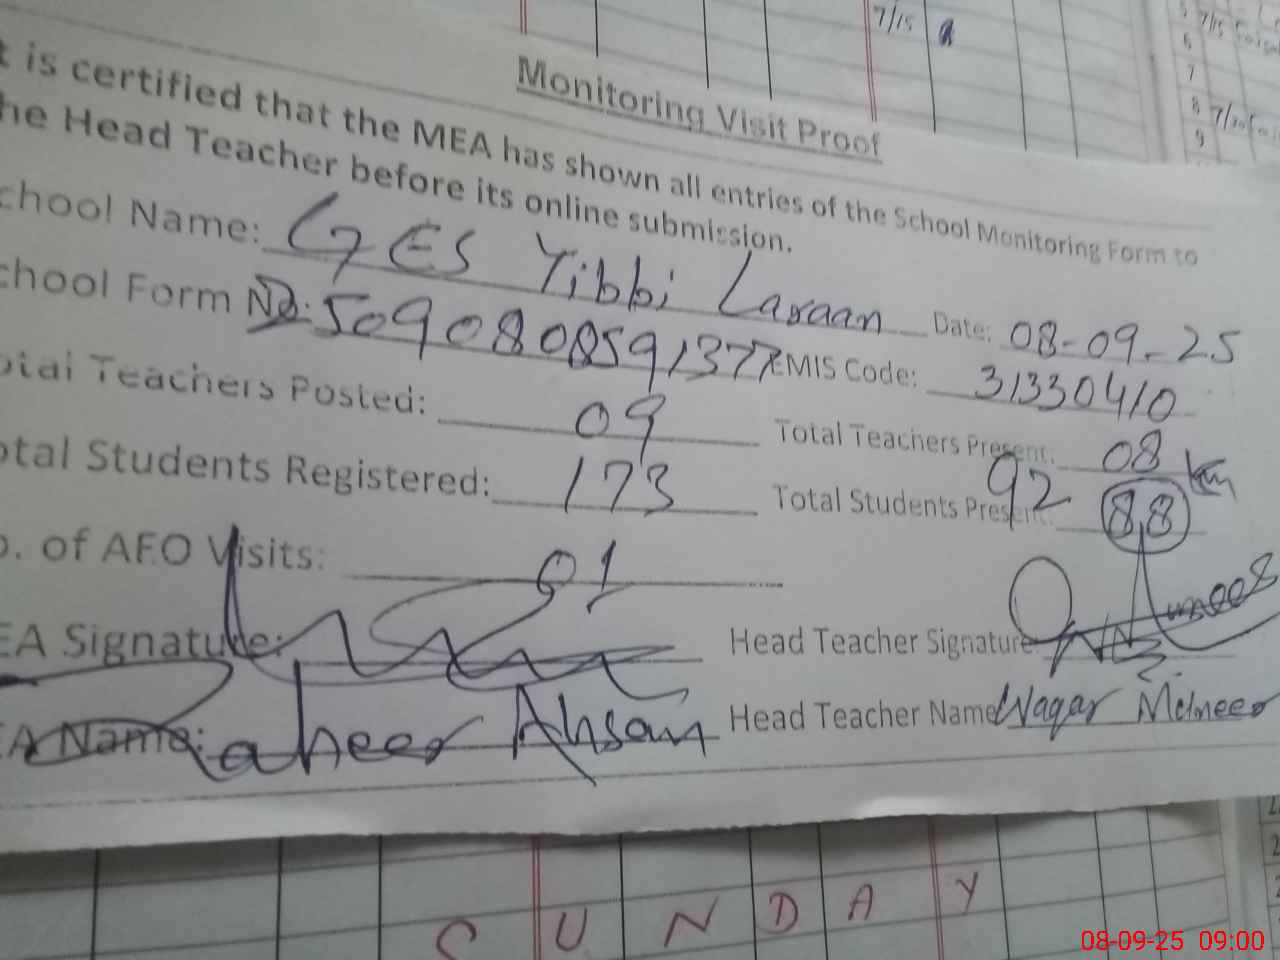 Monitoring Visit Proof
t is certified that the MEA has shown all entries of the School Monitoring Form to
he Head Teacher before its online submission.
chool Name: GES Tibbi Laraan Date: 08-09-25
chool Form No: 5090808591377 EMIS Code: 31330410
otal Teachers Posted: 09 Total Teachers Present: 08
otal Students Registered: 173 Total Students Present: 92 88
o. of AEO Visits: 01
EA Signature: Head Teacher Signature
EA Name: Zaheer Ahsam Head Teacher Name Waqar
SUNDAY
7/15
6
7
8
9
08-09-25 09:00